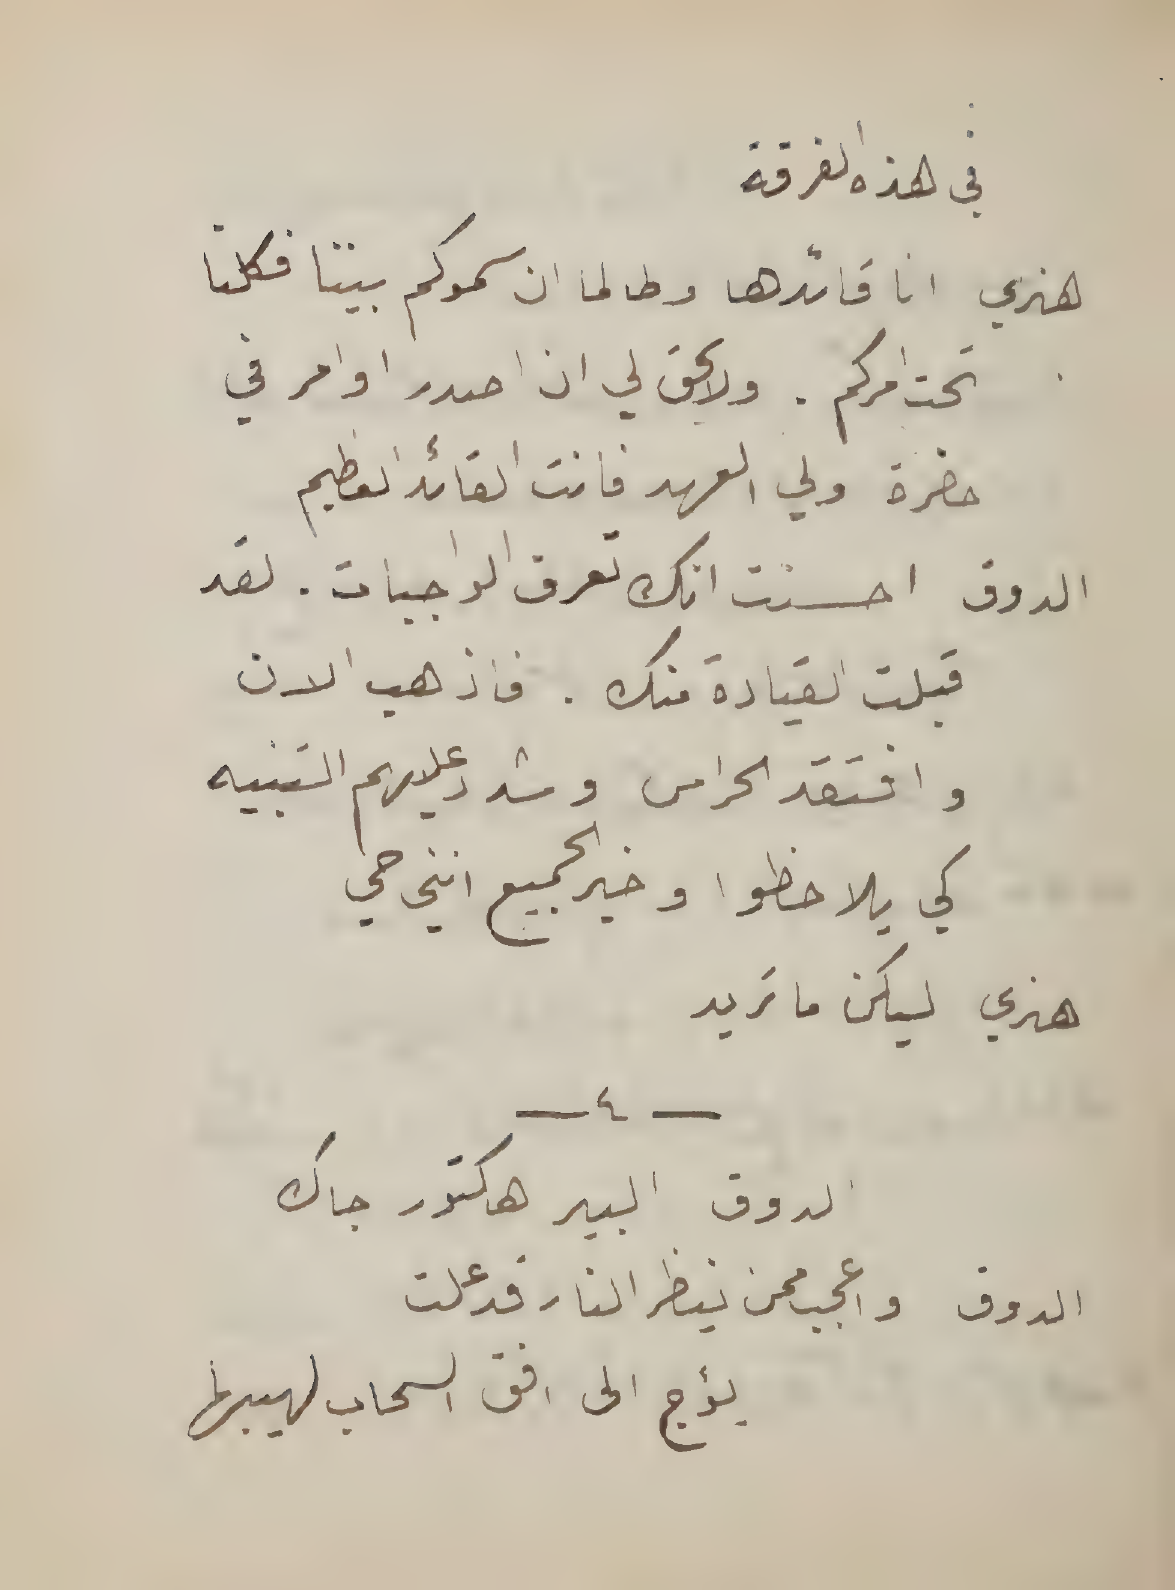 في هذه الفرقة
هنري انا قائدها وطالما ان سموكم بيننا فكلنا
تحت امركم . ولا يحق لي ان اصدر اوامر في
حضرة ولي العهد فانت القائد العظيم
الدوق احسنت انك تعرف الواجبات . لقد
قبلت القيادة منك . فاذهب الان
وافتقد الحراس وشدد عليهم التنبيه
كي يلاحظوا وخبر الجميع انني حي
هنري ليكن ما تريد
— ٤ —
الدوق البير هكتور جاك
الدوق واعجب ممن ينظر النار قد علت
يؤج الى افق السحاب لهيبها